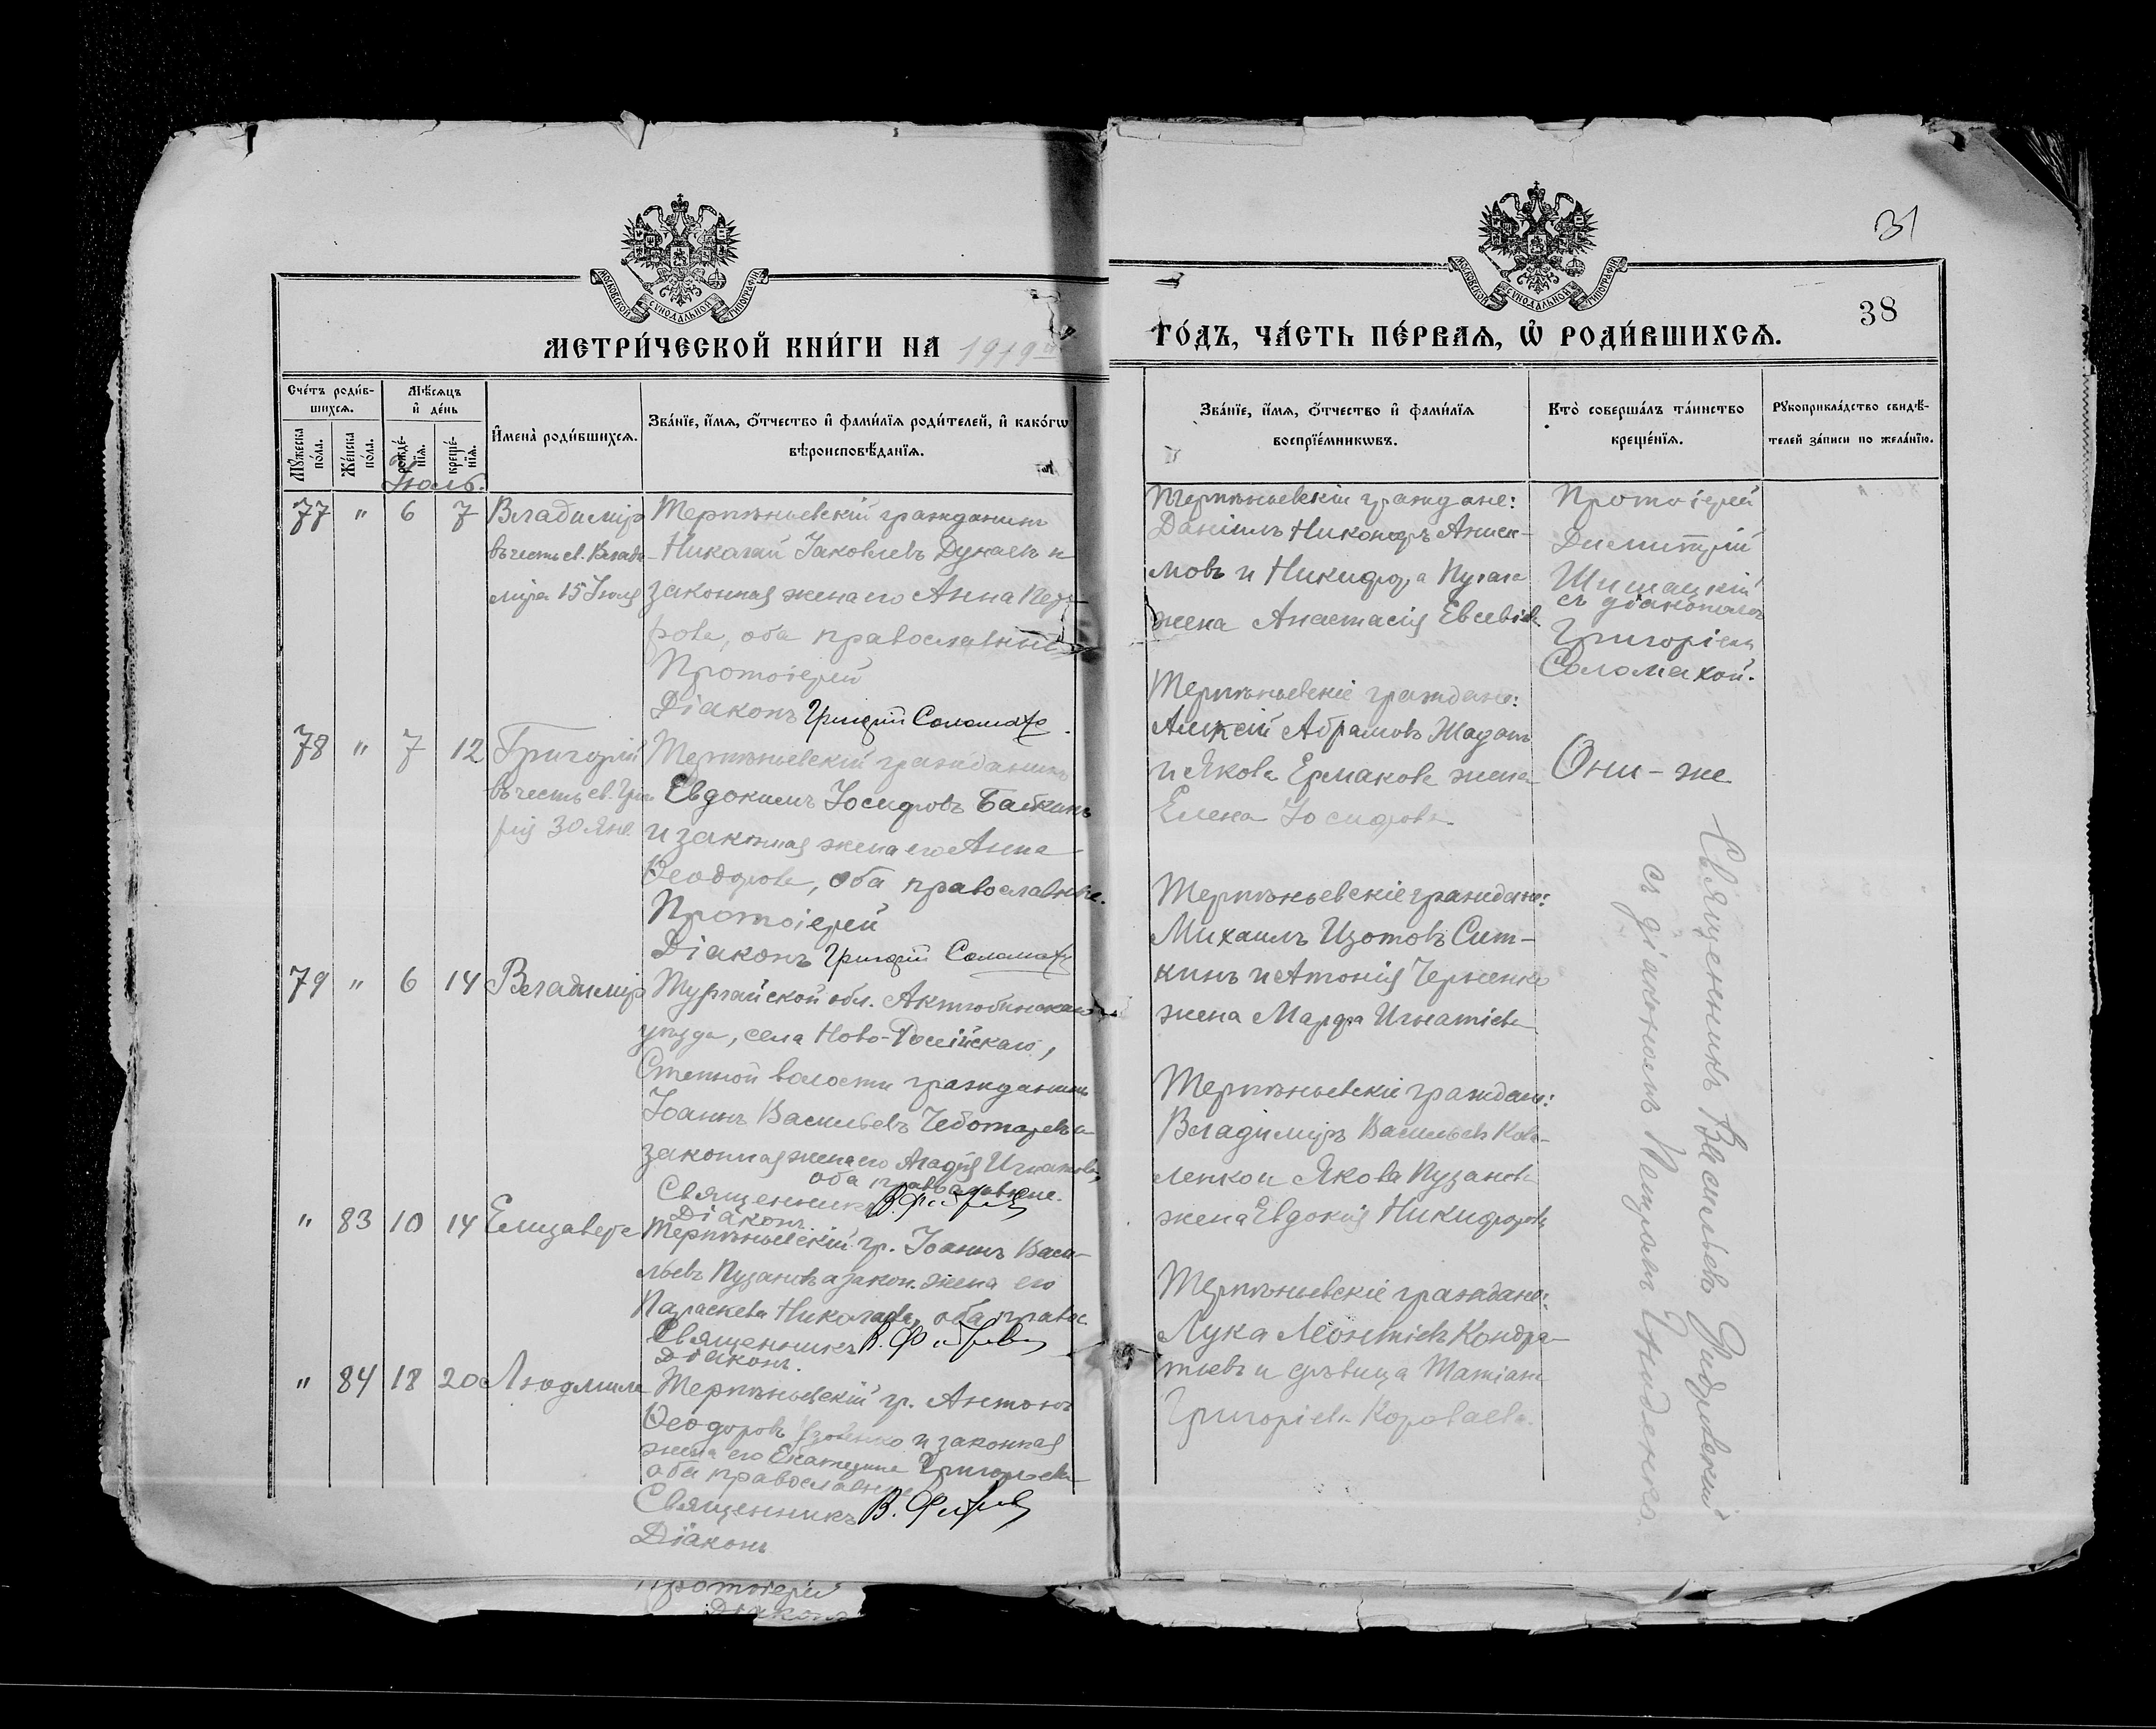 31
38
МОСКОВСКОЙ СѴНОДАЛЬНОЙ ТИПОГРАФІИ
МОСКОВСКОЙ СѴНОДАЛЬНОЙ ТИПОГРАФІИ
МЕТРИ́ЧЕСКОЙ КНИ́ГИ НА 1919
ГО́ДЪ, ЧА́СТЬ ПЕ́РВАЯ, Ѡ҆ РОДИ́ВШИХСЯ.
Сче́тъ роди́в-
шихся.
Мѣ́сяцъ
и҆ де́нь
Мꙋ́жеска
по́ла.
Же́нска
по́ла.
рожде́-
нїя.
креще́-
нїя.
И҆мена̀ роди́вшихся.
Зва́нїе, и҆́мя, ѻ҆́тчество и҆ фами́лїя роди́телей, и҆ како́гѡ
вѣроисповѣ́данїя.
Зва́нїе, и҆́мя, ѻ҆́тчество и҆ фами́лїя
воспрїе́мникѡвъ.
Кто̀ соверша́лъ та́инство
креще́нїя.
Рꙋкоприкла́дство свидѣ́-
телей за́писи по жела́нїю.
Іюль.
77 " 6 7 Владиміръ
въ честь св. Влади-
міра 15 Іюля
Терпѣньевскій гражданинъ
Николай Іаковлевъ Дунаевъ и
законная жена его Анна Пет-
рова, оба православные
Протоіерей
Діаконъ Григорій Соломаха.
Терпѣньевскіи граждане:
Даніилъ Никоноръ Аниси-
мовъ и Никифора
жена Анастасія Евсевіева
Протоіерей
Димитрій
Шишацкій
съ діакономъ
Григоріемъ
Соломахой.
78 " 7 12 Григорій
въ честь св. Григо-
рія 30 Янв.
Терпѣньевскій гражданинъ
Евдокимъ Іосифовъ Бабкинъ
и законная жена его Анна
Ѳеодорова, оба православные.
Протоіерей
Діаконъ Григорій Соломаха
Терпѣньевскіе граждане:
Алексій Абрамовъ Жаданъ
и Якова Ермакова жена
Елена Іосифова
Они - же
79 " 6 14 Владиміръ
Тургайской обл. Актюбинскаго
уѣзда, села Ново-Россійскаго,
Степной волости гражданинъ
Іоаннъ Васильевъ Чеботаревъ и
законная жена его Агафія Игнатова,
оба православные.
Священникъ
Діаконъ.
Терпѣньевскіе граждане:
Михаилъ Изотовъ Сит-
кинъ и Антонія Черненко
жена Марфа Игнатіева
" 83 10 14 Елизавета
Терпѣньевскій гр. Іоаннъ Васи-
льевъ Пузановъ и закон. жена его
Параскева Николаева, оба правос
Священникъ
Діаконъ.
Терпѣньевскіе граждане:
Владиміръ Васильевъ Кова-
ленко и Якова Пузанова
жена Евдокія Никифорова
" 84 18 20 Людмила
Терпѣньевскій гр. Антонъ
Ѳеодоровъ и законная
жена его Екатерина Григорьева
оба православные
Священникъ
Діаконъ
Терпѣньевскіе граждане:
Лука Леонтіевъ Кондра-
тьевъ и дѣвица Татіана
Григоріева Короваева.
Священникъ Василій
съ діакономъ Петромъ Гниденко.
Протоіерей
Діаконъ